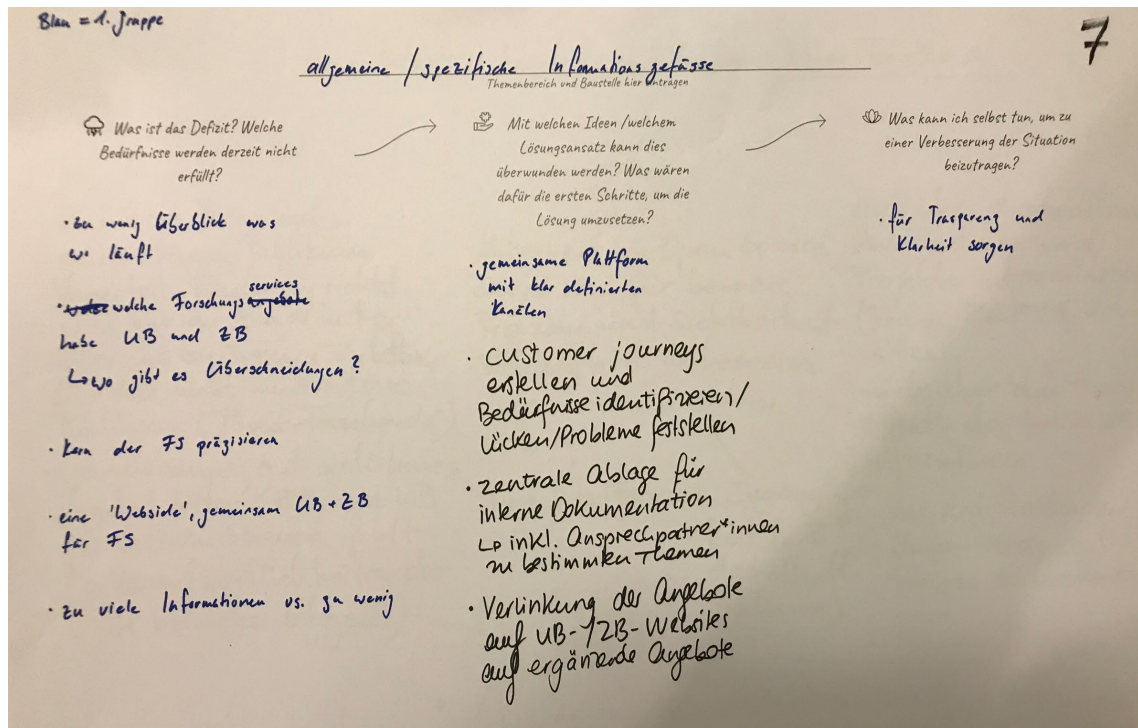 Blau = 1. Gruppe
7
allgemeine / spezifische Informationsgefässe
Themenbereich und Baustelle hier eintragen
Was ist das Defizit? Welche
Bedürfnisse werden derzeit nicht
erfüllt?
• zu wenig Überblick was
wo läuft
• welche Forschungsservices
angebote
habe UB und ZB
↳ wo gibt es Überschneidungen?
• Kern der FS präzisieren
• eine 'Webside', gemeinsam UB + ZB
für FS
• zu viele Informationen vs. zu wenig
Mit welchen Ideen /welchem
Lösungsansatz kann dies
überwunden werden? Was wären
dafür die ersten Schritte, um die
Lösung umzusetzen?
• gemeinsame Plattform
mit klar definierten
Kanälen
• customer journeys
erstellen und
Bedürfnisse identifizieren/
Lücken/Probleme feststellen
• zentrale Ablage für
interne Dokumentation
↳ inkl. Ansprechpartner*innen
zu bestimmten Themen
• Verlinkung der Angebote
auf UB-/ZB-Websites
auf ergänzende Angebote
Was kann ich selbst tun, um zu
einer Verbesserung der Situation
beizutragen?
• für Trasparenz und
Klarheit sorgen